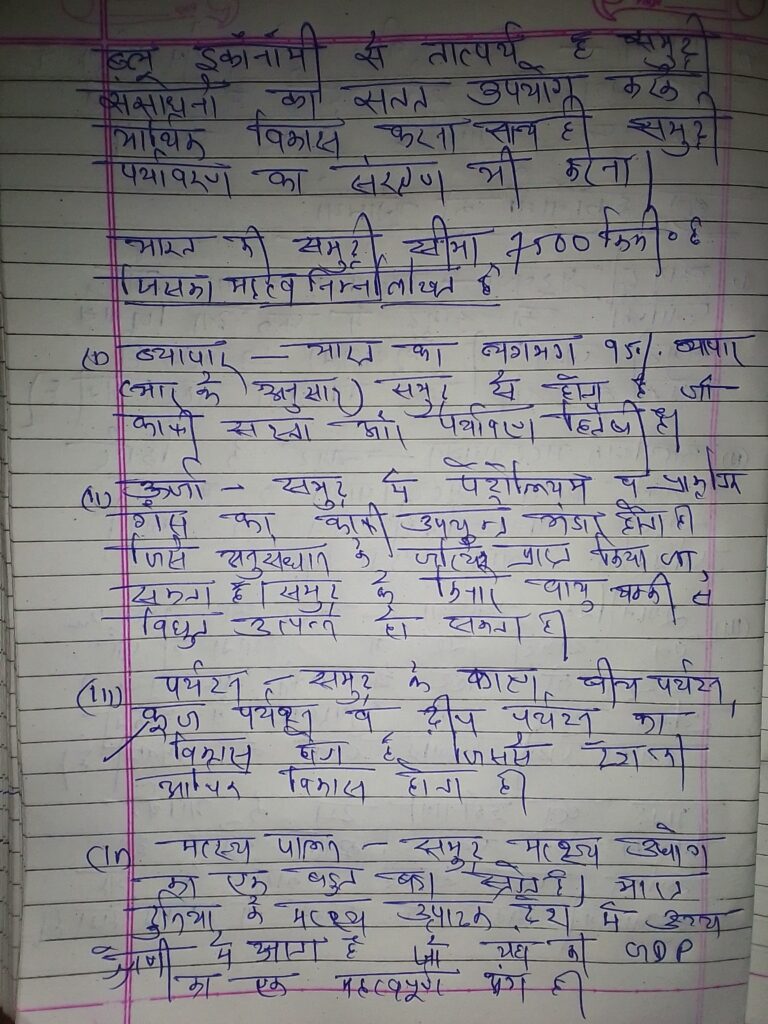 ब्लू इकॉनॉमी से तात्पर्य है समुद्री
संसाधनों का सतत उपयोग करके
आर्थिक विकास करना साथ ही समुद्री
पर्यावरण का संरक्षण भी करना।
भारत की समुद्री सीमा 7500 किमी० है
जिसका महत्व निम्नलिखित है
(i) व्यापार – भारत का लगभग 95% व्यापार
(भार के अनुसार) समुद्र से होता है जो
काफी सस्ता और पर्यावरण हितैषी है।
(ii) ऊर्जा – समुद्र में पेट्रोलियम व प्राकृतिक
गैस का काफी उपयुक्त भंडार होता है
जिसे अनुसंधान के जरिये प्राप्त किया जा
सकता है। समुद्र के किनारे वायु चक्की से
विधुत उत्पन्न हो सकता है।
(iii) पर्यटन – समुद्र के कारण बीच पर्यटन,
क्रूज पर्यटन व द्वीप पर्यटन का
विकास होता है जिससे देश का
आर्थिक विकास होता है।
(iv) मत्स्य पालन – समुद्र मत्स्य उधोग
का एक बहुत बड़ा स्रोत है। भारत
दुनिया के मत्स्य उत्पादक देश में उच्च
श्रेणी में आता है जो यहां की GDP
का एक महत्वपूर्ण अंग है।